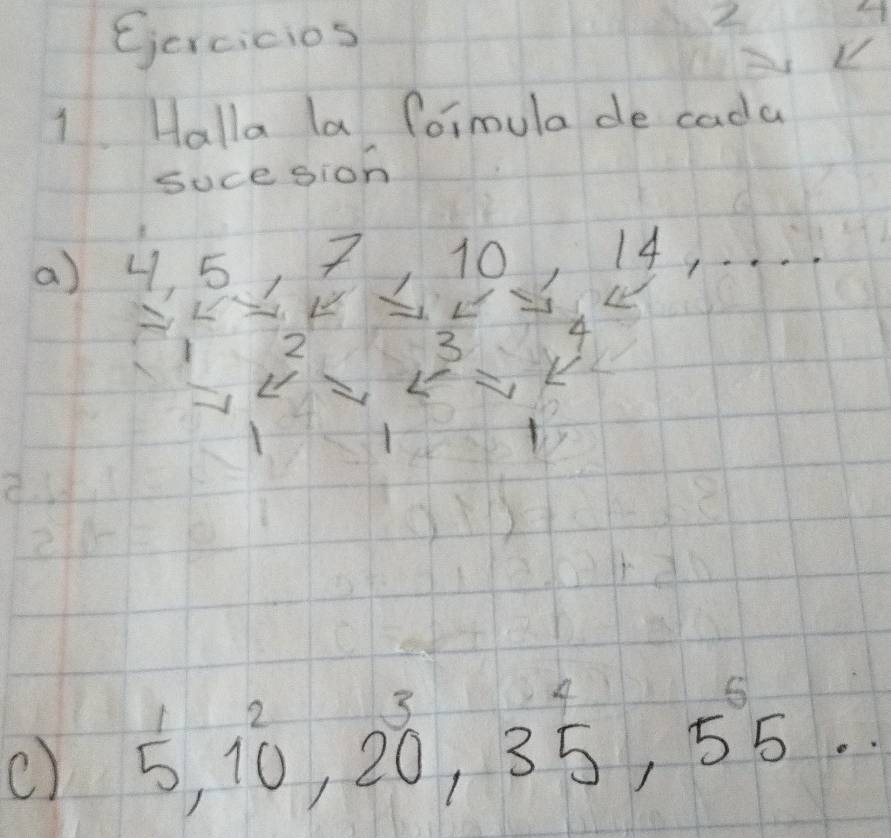 Ejercicios
2 4
1. Halla la fórmula de cada
sucesión
a) 4, 5, 7, 10, 14, ....
1 2 3 4
1 1 1
1 2 3 4 5
c) 5, 10, 20, 35, 55 ..